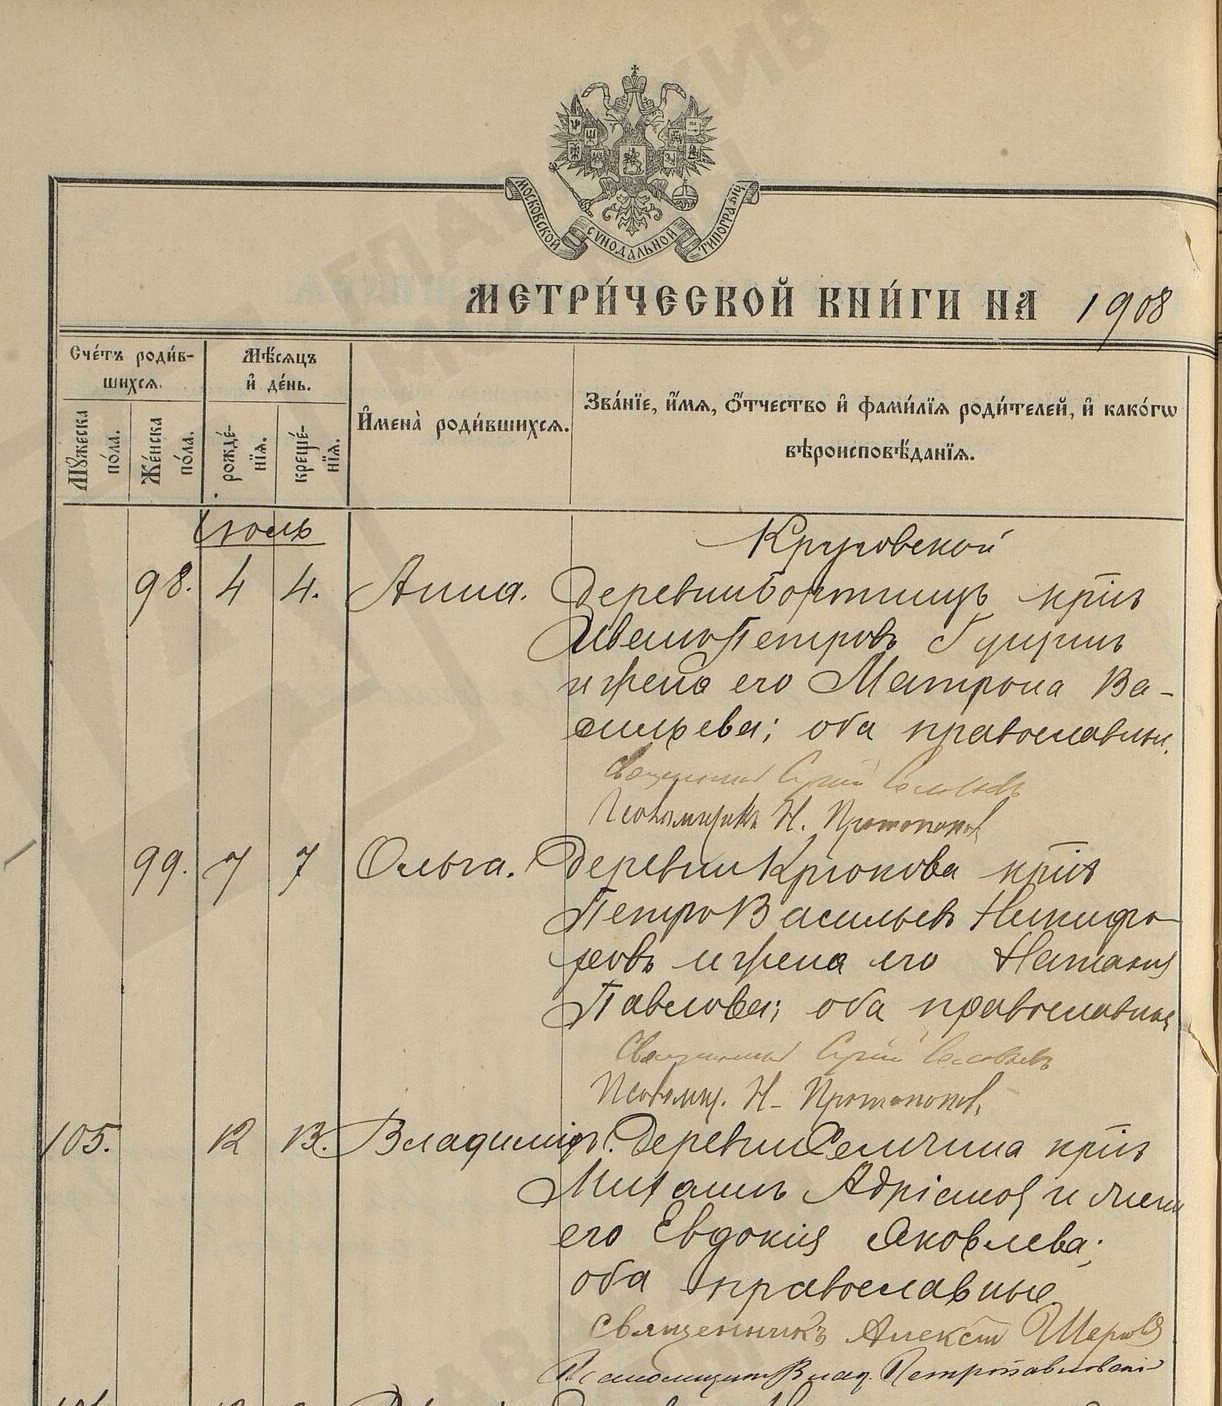 МОСКОВСКОЙ СѴНОДАЛЬНОЙ ТИПОГРАФІИ
МЕТРИ́ЧЕСКОЙ КНИ́ГИ НА 1908
Сче́тъ роди́в-
шихся.
Мѣ́сяцъ
и҆ де́нь.
Мꙋ́жеска
по́ла.
Же́нска
по́ла.
рожде́-
нїя.
креще́-
нїя.
И҆мена̀ роди́вшихся.
Зва́нїе, и҆́мя, ѻ҆́тчество и҆ фами́лїя роди́телей, и҆ како́гѡ
вѣроисповѣ́данїя.
Іюль
Круговской
98. 4 4. Анна. Деревни крⷭ҇тіз
Петровъ
и жена его Матрона Ва-
сильева; оба православны.
Священникъ Сергій Соловьевъ
Псаломщикъ Н. Протопоповъ
99. 7 7 Ольга. Деревни Крюкова крⷭ҇тіз
Петръ Васильевъ Никифо-
ровъ и жена его Наталія
Павлова; оба православные
Священникъ Сергій Соловьевъ
Псаломщ. Н. Протопоповъ
105. 12 13. Владиміръ. Деревни Селичина крⷭ҇тіз
Михаилъ Адріановъ и жена
его Евдокія Яковлева;
оба православные
Священникъ Алексѣй
Псаломщикъ Влад. Петропавловскій